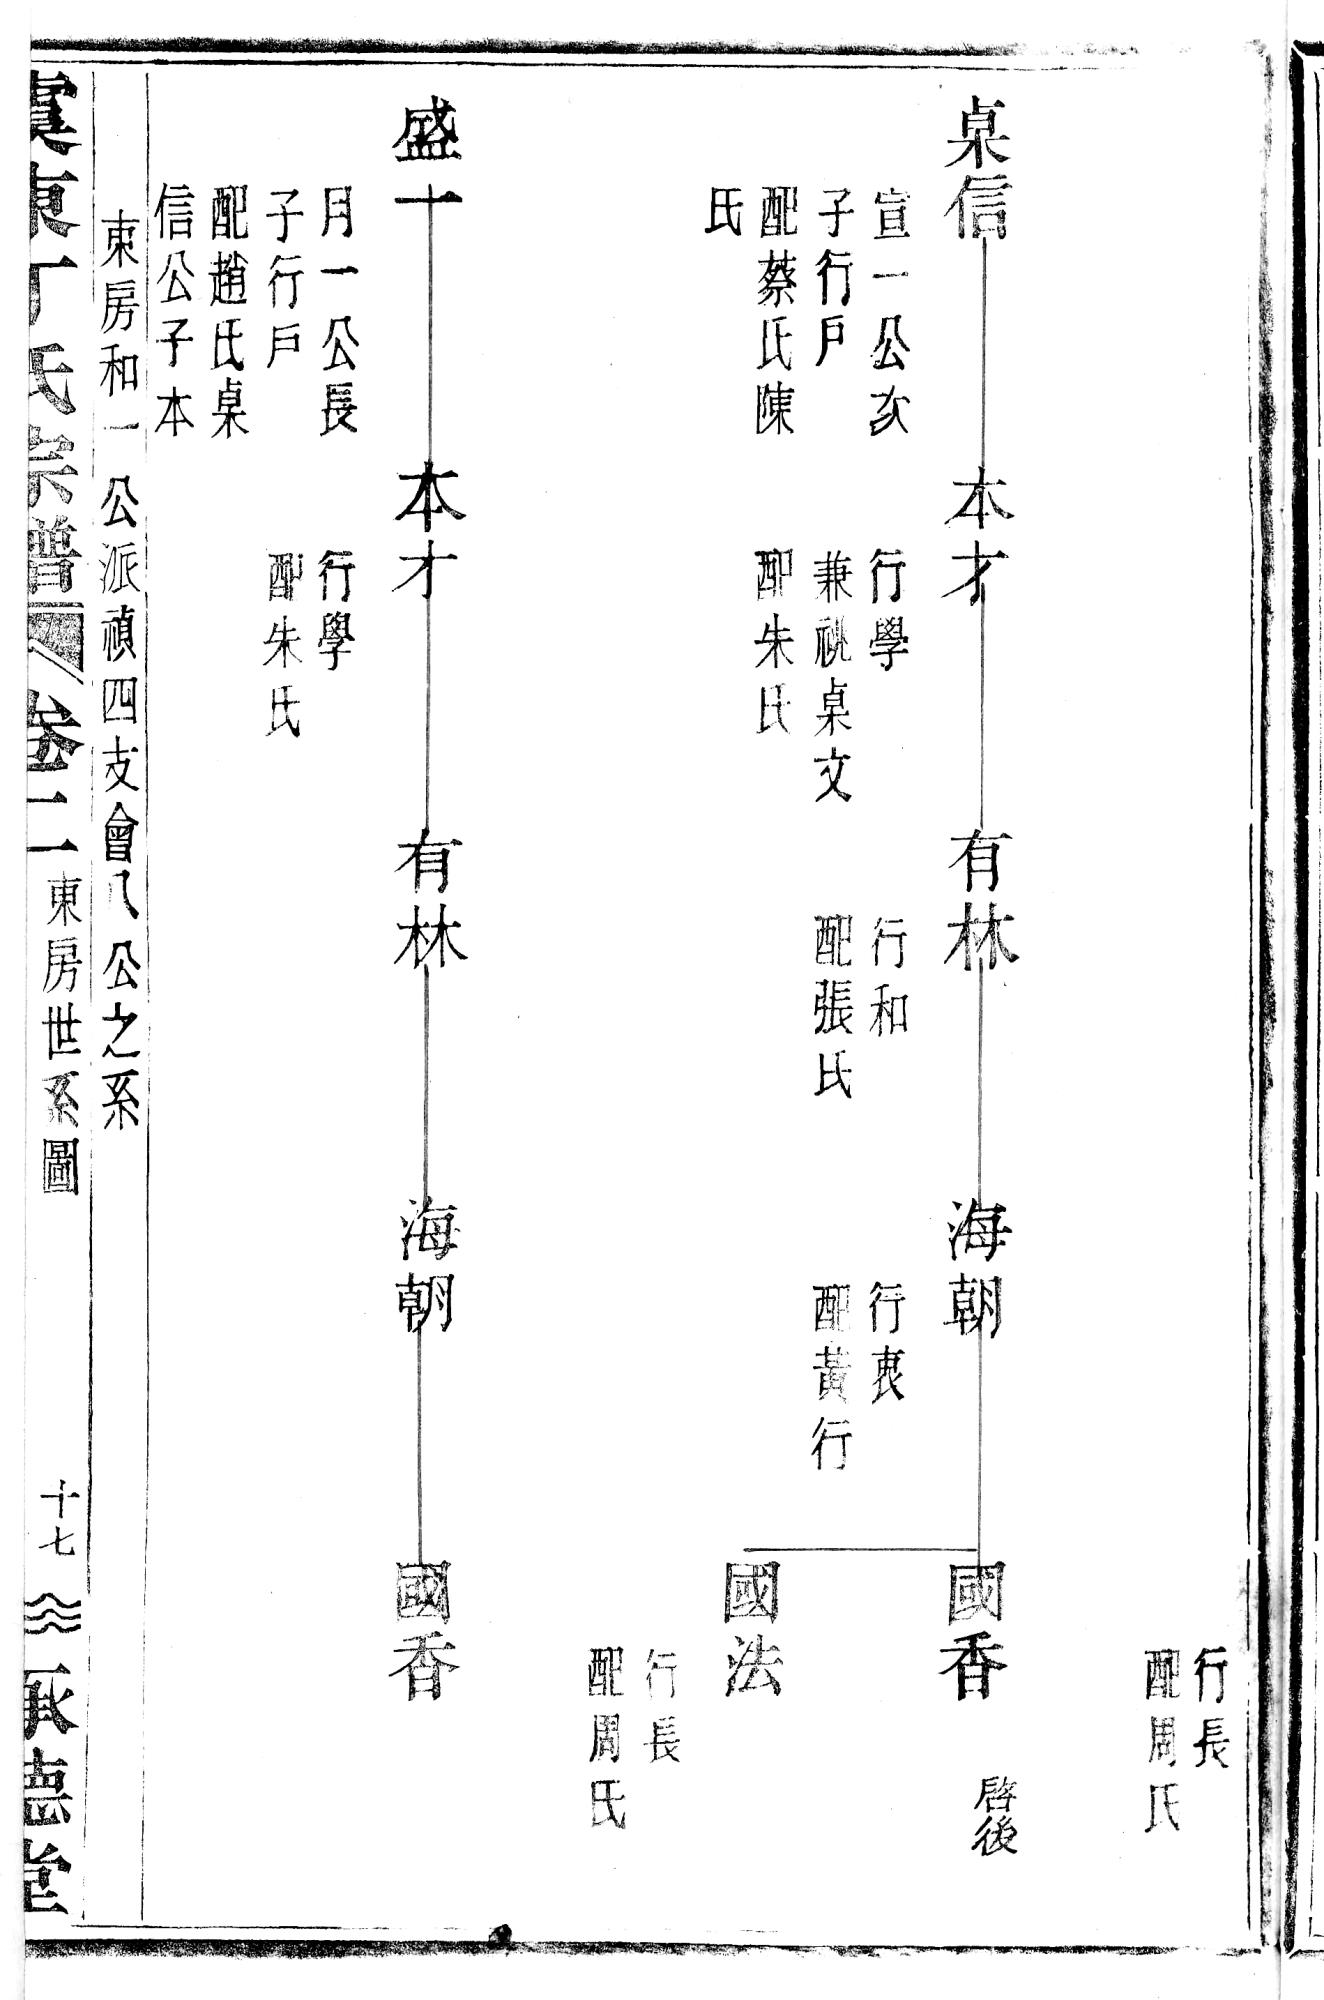 行長
配周氏
桌信
本才
有林
海朝
國香
啓後
宣一公次
子行戶
配蔡氏陳
氏
行學
兼祧桌文
配朱氏
行和
配張氏
行衷
配黃行
國法
行長
配周氏
盛一
本才
有林
海朝
國香
月一公長
子行戶
配趙氏桌
信公子本
行學
配朱氏
東房和一公派禎四支會八公之系
虞東丁氏宗譜 卷二 東房世系圖 十七 承德堂